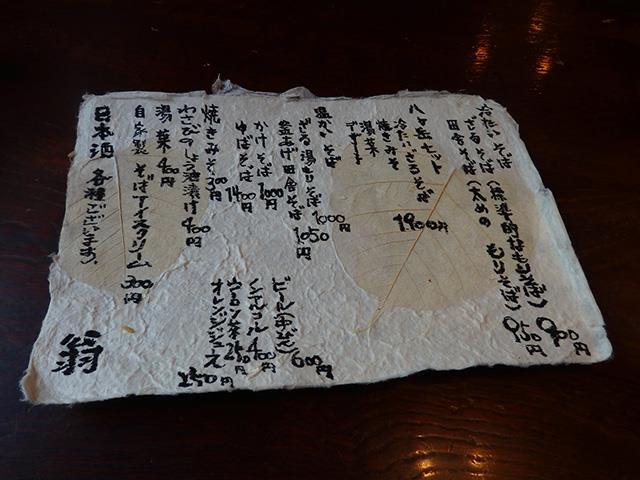 冷たいそば
ざるそば(標準的なもりそば) 900円
田舎そば(太めのもりそば) 950円
八ヶ岳セット 1900円
冷たいざるそば
焼きみそ
湯葉
デザート
温かいそば
ざる湯もりそば 1000円
釜あげ田舎そば 1050円
かけそば 1000円
ゆばそば 1400円
焼きみそ 300円
わさびのしょう油漬け 400円
湯葉 400円
自家製そばアイスクリーム 300円
日本酒 各種ございます。
ビール(中びん) 600円
ノンアルコール 400円
ウーロン茶 250円
オレンジジュース 250円
翁